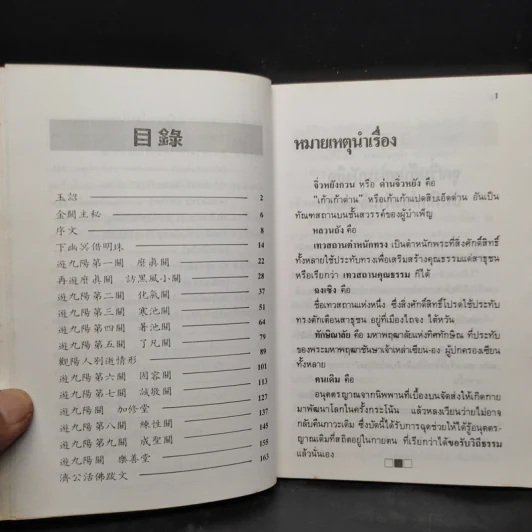 目錄
玉詔 2
金闕主秘 6
序文 8
下幽冥借明珠 14
遊九陽第一關 磨真關 22
再遊磨真關 訪黑風小關 28
遊九陽第二關 化氣關 37
遊九陽第三關 寒池關 51
遊九陽第四關 著池關 64
遊九陽第五關 了凡關 79
觀陽人別逝情形 89
遊九陽第六關 因容關 101
遊九陽第七關 誠敬關 113
遊九陽關 加修堂 127
遊九陽第八關 練性關 137
遊九陽第九關 成聖關 145
遊九陽關 樂善堂 155
濟公活佛跋文 163
1
หมายเหตุนำเรื่อง
จิ่วหยังกวน หรือ ด่านจิ่วหยัง คือ
"เก้าเก้าด่าน" หรือเก้าเก้าแปดสิบเอ็ดด่าน อันเป็น
ทัณฑสถานบนชั้นสวรรค์ของผู้บำเพ็ญ
หลวนถัง คือ
เทวสถานตำหนักทรง เป็นตำหนักพระที่สิ่งศักดิ์สิทธิ์
ทั้งหลายใช้ประทับทรงเพื่อเสริมสร้างคุณธรรมแด่สาธุชน
หรือเรียกว่า เทวสถานคุณธรรม ก็ได้
ฉงเซิง คือ
ชื่อเทวสถานแห่งหนึ่ง ซึ่งสิ่งศักดิ์สิทธิ์โปรดใช้ประทับ
ทรงตักเตือนสาธุชน อยู่ที่เมืองไถจง ไต้หวัน
ทักษิณาลัย คือ มหาพฤฒาลัยแห่งทิศทักษิณ ที่ประทับ
ของพระมหาพฤฒาชันษาเจ้าเหล่าเซียน-อง ผู้ปกครองเซียน
ทั้งหลาย
คนเดิม คือ
อนุตตรญาณจากนิพพานที่เบื้องบนจัดส่งให้เกิดกาย
มาพัฒนาโลกในครั้งกระโน้น แล้วหลงเวียนว่ายไม่อาจ
กลับคืนภาวะเดิม ซึ่งบัดนี้ได้รับการฉุดช่วยให้ได้รู้อนุตตร-
ญาณเดิมที่สถิตอยู่ในกายตน ที่เรียกว่าได้ขอรับวิถีธรรม
แล้วนั่นเอง